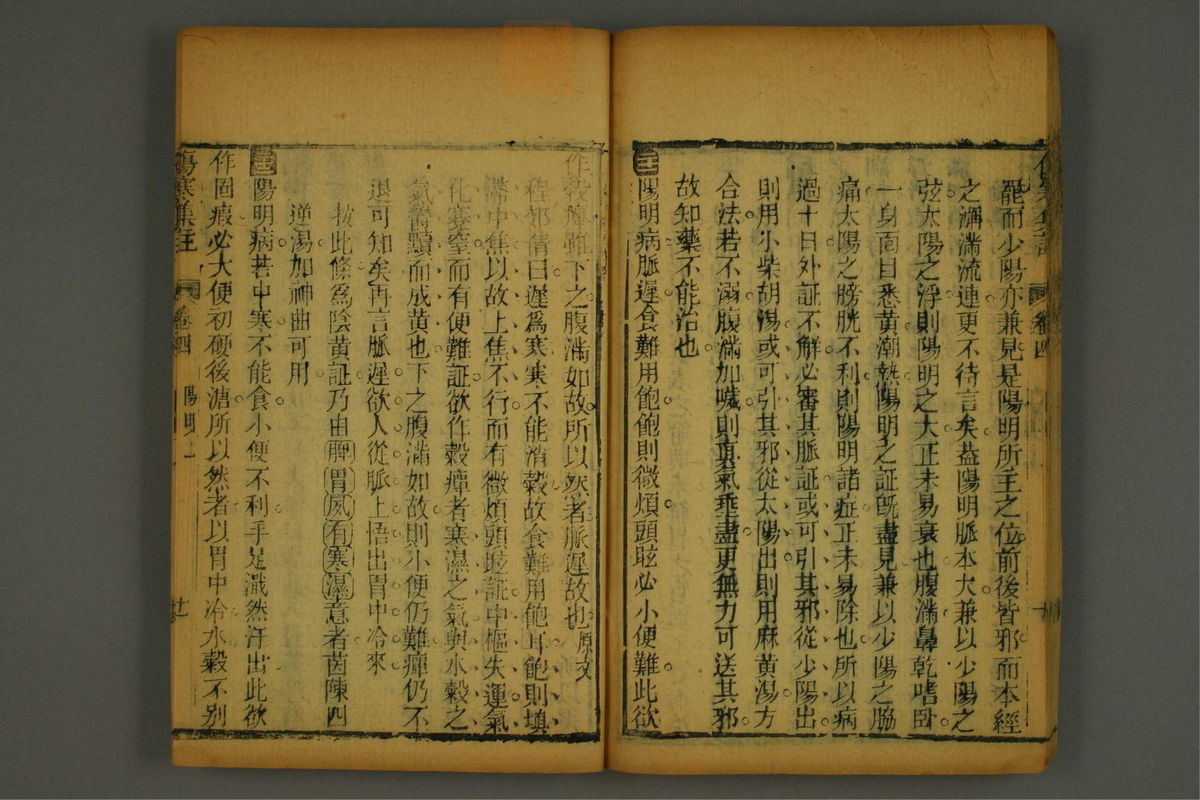 罷而少陽亦兼見是陽明所主之位前後皆邪而本經
之瀰滿流連更不待言矣蓋陽明脈本大兼以少陽之
弦太陽之浮則陽明之大正未易衰也腹滿鼻乾嗜臥
一身面目悉黃潮熱陽明之証旣盡見兼以少陽之脇
痛太陽之膀胱不利則陽明諸症正未易除也所以病
過十日外証不解必審其脈証或可引其邪從少陽出
則用小柴胡湯或可引其邪從太陽出則用麻黃湯方
合法若不溺腹滿加噦則真氣垂盡更無力可送其邪
故知藥不能治也
陽明病脈遲食難用飽飽則微煩頭眩必小便難此欲
作穀癉雖下之腹滿如故所以然者脈遲故也原文
程郊倩曰遲爲寒寒不能消穀故食難用飽耳飽則填
滯中焦以故上焦不行而有微煩頭眩証中樞失運氣
化塞窒而有便難証欲作穀癉者寒濕之氣與水穀之
氣鬱蒸而成黃也下之腹滿如故則小便仍難癉仍不
退可知矣再言脈遲欲人從脈上悟出胃中冷來
按此條爲陰黃証乃由脾胃夙有寒濕意者茵陳四
逆湯加神曲可用
陽明病若中寒不能食小便不利手足濈然汗出此欲
作固瘕必大便初硬後溏所以然者以胃中冷水穀不別
傷寒集註
卷四
陽明一